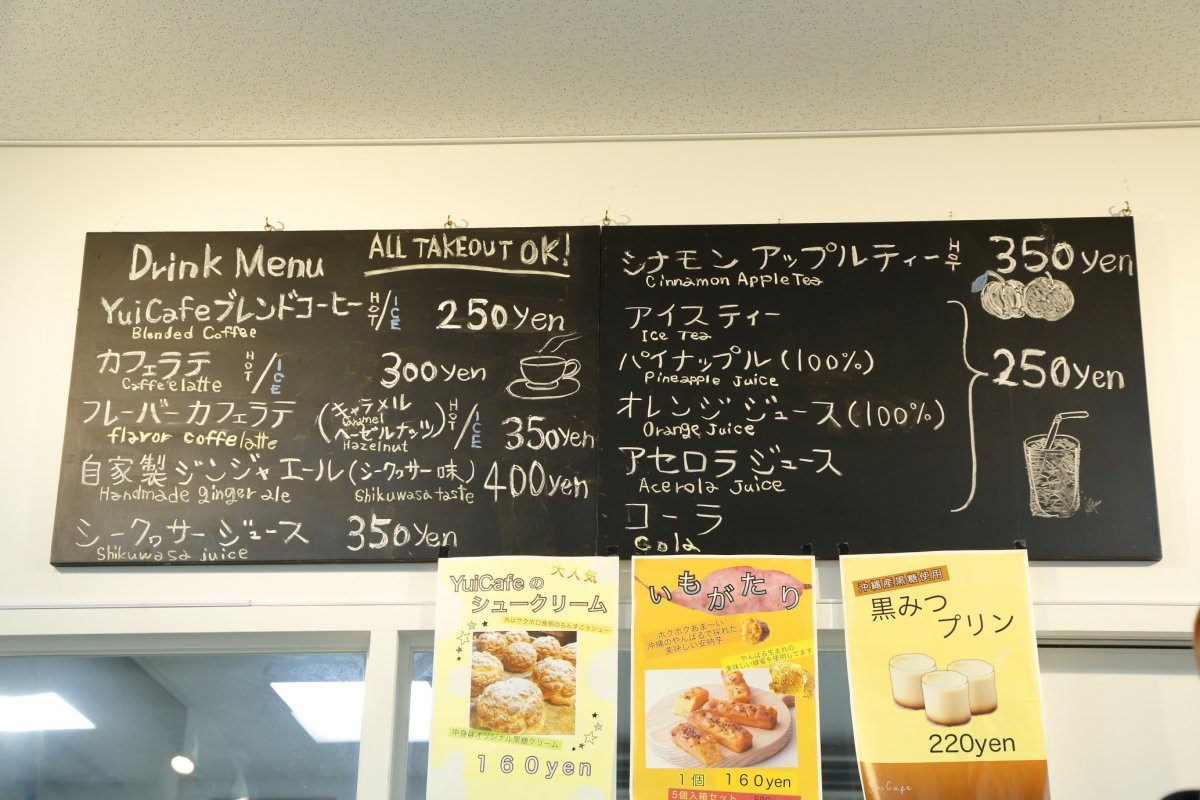 Drink Menu ALL TAKEOUT OK!
YuiCafeブレンドコーヒー HOT/ICE 250yen
Blended Coffee
カフェラテ HOT/ICE 300yen
Caffe e latte
フレーバー カフェラテ (キャラメル HOT/ICE 350yen
Caramel
ヘーゼルナッツ)
flavor coffelatte Hazelnut
自家製ジンジャエール(シークヮサー味) 400yen
Handmade ginger ale Shikuwasa taste
シークヮサージュース 350yen
Shikuwasa juice
シナモン アップルティー HOT 350yen
Cinnamon Apple Tea
アイスティー
Ice Tea
パイナップル(100%) 250yen
Pineapple Juice
オレンジジュース(100%)
Orange Juice
アセロラジュース
Acerola Juice
コーラ
Cola
YuiCafeの 大人気
シュークリーム
外はサクホロ食感のちんすこうシュー
中身はオリジナル黒糖クリーム
160yen
いもがたり
ホクホクあま〜い
沖縄のやんばるで採れた
美味しい安納芋
やんばる生まれの
美味しい蜂蜜を使用してます
1個 160yen
5個入箱セット
沖縄産黒糖使用
黒みつ
プリン
220yen
YuiCafe